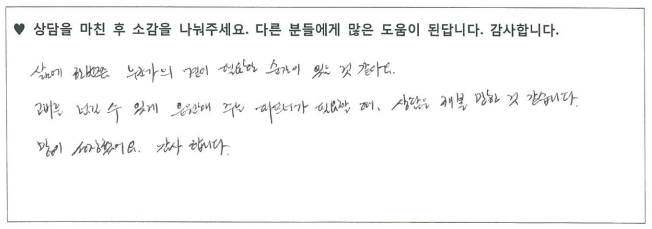 ♥ 상담을 마친 후 소감을 나눠주세요. 다른 분들에게 많은 도움이 된답니다. 감사합니다.
삶에 한번쯤 누군가의 편이 필요한 순간이 있는 것 같아요.
고비를 넘길 수 있게 응원해 주는 파트너가 필요할 때, 상담을 해볼 만한 것 같습니다.
많이 성장했어요. 감사 합니다.